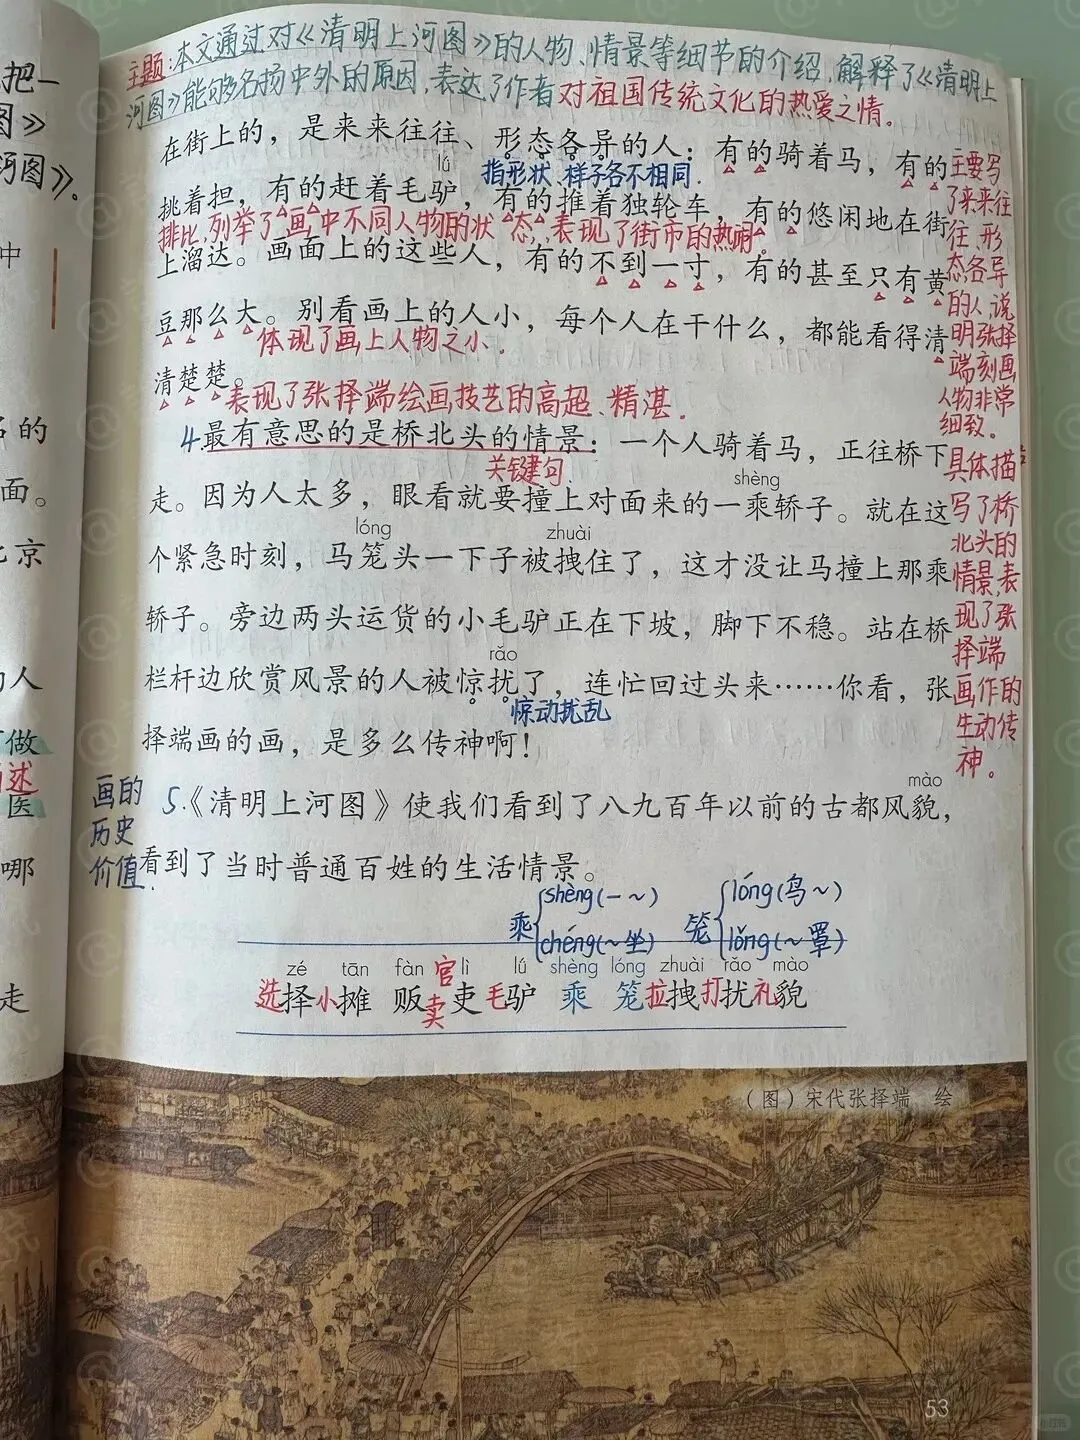 把一
图》
河图》。
中
名的
面。
北京
的人
做
述
医
哪
走
主题:本文通过对《清明上河图》的人物、情景等细节的介绍,解释了《清明上
河图》能够名扬中外的原因,表达了作者对祖国传统文化的热爱之情。
在街上的,是来来往往、形态各异的人:有的骑着马,有的
lǘ
指形状、样子各不相同.
挑着担,有的赶着毛驴,有的推着独轮车,有的悠闲地在街
排比,列举了画中不同人物的状态,表现了街市的热闹。
上溜达。画面上的这些人,有的不到一寸,有的甚至只有黄
豆那么大。别看画上的人小,每个人在干什么,都能看得清
体现了画上人物之小.
清楚楚。
表现了张择端绘画技艺的高超、精湛.
主要写
了来来往
往、形
态各异
的人,说
明张择
端刻画
人物非常
细致。
4.最有意思的是桥北头的情景:一个人骑着马,正往桥下
关键句
shèng
走。因为人太多,眼看就要撞上对面来的一乘轿子。就在这
lóng zhuài
个紧急时刻,马笼头一下子被拽住了,这才没让马撞上那乘
轿子。旁边两头运货的小毛驴正在下坡,脚下不稳。站在桥
rǎo
栏杆边欣赏风景的人被惊扰了,连忙回过头来……你看,张
惊动扰乱
择端画的画,是多么传神啊!
具体描
写了桥
北头的
情景,表
现了张
择端
画作的
生动传
神。
画的
历史
价值.
mào
5.《清明上河图》使我们看到了八九百年以前的古都风貌,
看到了当时普通百姓的生活情景。
乘 shèng(一~)
chéng(~坐)
笼 lóng(鸟~)
lǒng(~罩)
zé tān fàn lì lǘ shèng lóng zhuài rǎo mào
选择 小摊 贩卖 官吏 毛驴 乘 笼 拉拽 打扰 礼貌
(图)宋代张择端 绘
53